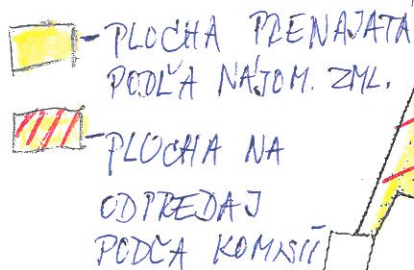 - PLOCHA PRENAJATÁ
PODĽA NÁJOM. ZML.
- PLOCHA NA
ODPREDAJ
PODĽA KOMISIÍ